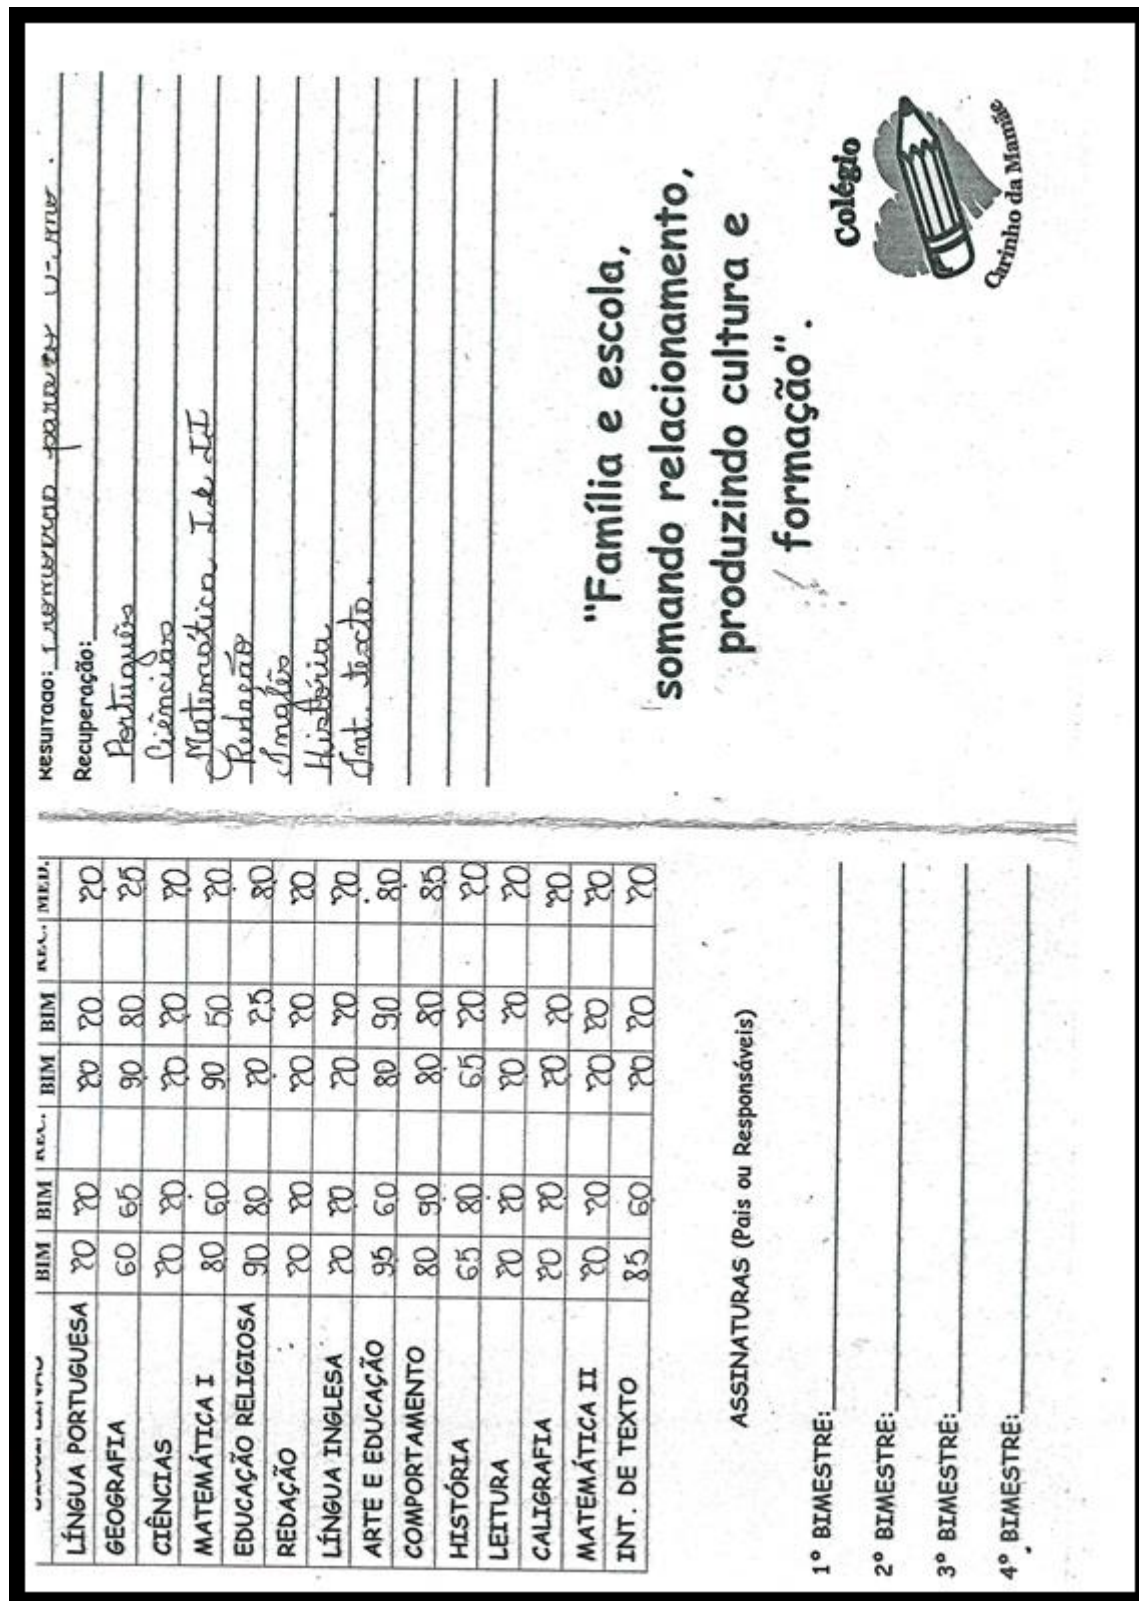 BIM BIM REC. BIM BIM REC. MED.
LÍNGUA PORTUGUESA 70 70 70 70 70
GEOGRAFIA 60 65 90 80 75
CIÊNCIAS 70 70 70 70 70
MATEMÁTICA I 80 60 90 50 70
EDUCAÇÃO RELIGIOSA 90 80 70 75 80
REDAÇÃO 70 70 70 70 70
LÍNGUA INGLESA 70 70 70 70 70
ARTE E EDUCAÇÃO 95 60 80 90 80
COMPORTAMENTO 80 90 80 80 85
HISTÓRIA 65 80 65 70 70
LEITURA 70 70 70 70 70
CALIGRAFIA 70 70 70 70 70
MATEMÁTICA II 70 70 70 70 70
INT. DE TEXTO 85 60 70 70 70
ASSINATURAS (Pais ou Responsáveis)
1º BIMESTRE:
2º BIMESTRE:
3º BIMESTRE:
4º BIMESTRE:
Resultado: Promovido para
Recuperação:
Português
Ciências
Matemática I e II
Redação
Inglês
História
Int. texto.
"Família e escola,
somando relacionamento,
produzindo cultura e
formação".
Colégio
Carinho da Mamãe